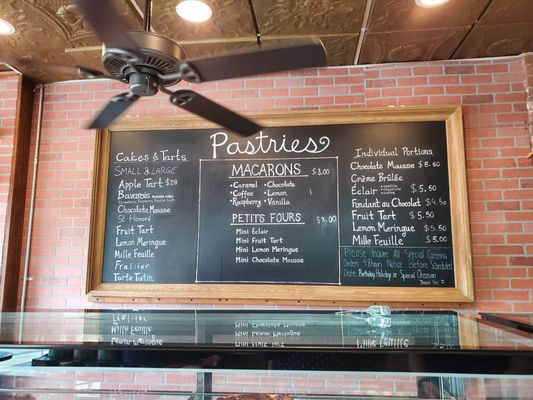 Pastries
Cakes & Tarts
Small & Large
Apple Tart $28
Bavarois
Chocolate Mousse
St. Honoré
Fruit Tart
Lemon Meringue
Mille Feuille
Fraisier
Tarte Tatin
Macarons $3.00
• Caramel • Chocolate
• Coffee • Lemon
• Raspberry • Vanilla
Petits Fours $3.00
Mini Éclair
Mini Fruit Tart
Mini Lemon Meringue
Mini Chocolate Mousse
Individual Portions
Chocolate Mousse $5.50
Crème Brûlée
Éclair $5.50
Fondant au Chocolat $4.50
Fruit Tart $5.50
Lemon Meringue $5.50
Mille Feuille $5.00
Please Inquire All Special Catering
Orders 48 Hours Notice Before Scheduled
Date. Birthday, Holiday or Special Occasion
Thank You